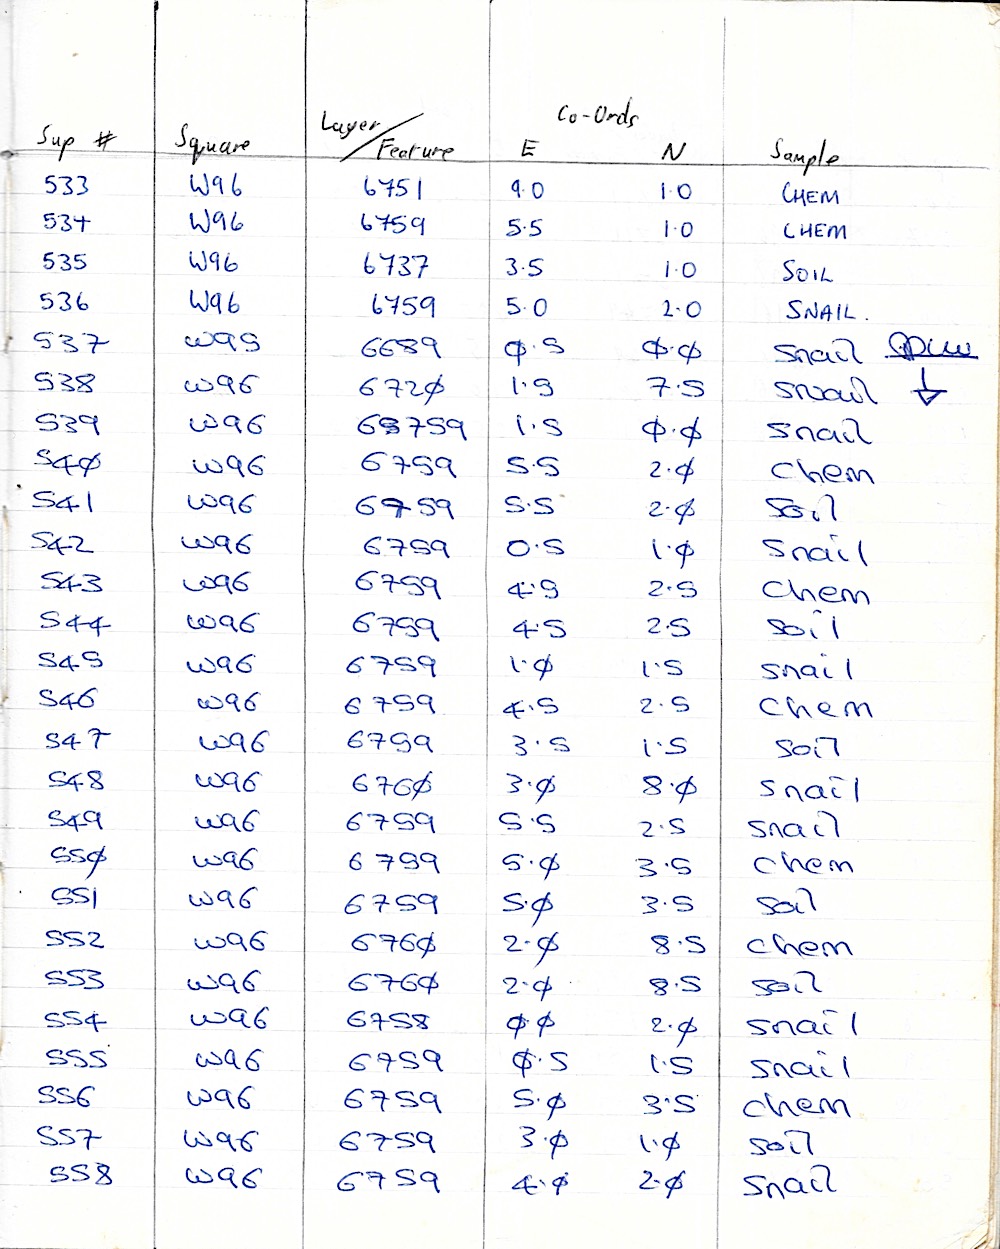 Co-Ords
Sup # Square Layer/Feature E N Sample
533 W96 6751 9.0 1.0 CHEM
534 W96 6759 5.5 1.0 CHEM
535 W96 6737 3.5 1.0 SOIL
536 W96 6759 5.0 2.0 SNAIL.
537 W95 6689 φ.5 φ.φ Snail
538 W96 672φ 1.5 7.5 snail ↓
539 W96 6759 1.5 φ.φ snail
54φ W96 6759 5.5 2.φ chem
541 W96 6759 5.5 2.φ soil
542 W96 6759 0.5 1.φ snail
543 W96 6759 4.5 2.5 chem
544 W96 6759 4.5 2.5 soil
545 W96 6759 1.φ 1.5 snail
546 W96 6759 4.5 2.5 chem
547 W96 6759 3.5 1.5 soil
548 W96 676φ 3.φ 8.φ snail
549 W96 6759 5.5 2.5 snail
55φ W96 6759 5.φ 3.5 chem
551 W96 6759 5.φ 3.5 soil
552 W96 676φ 2.φ 8.5 chem
553 W96 676φ 2.φ 8.5 soil
554 W96 6758 φ.φ 2.φ snail
555 W96 6759 φ.5 1.5 snail
556 W96 6759 5.φ 3.5 chem
557 W96 6759 3.φ 1.φ soil
558 W96 6759 4.φ 2.φ snail